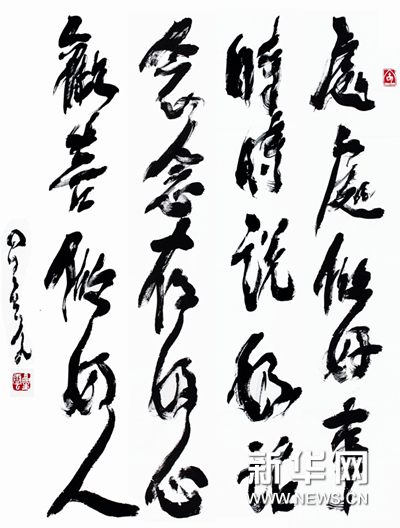 處處做好事
時時說好話
念念存好心
歡喜做好人
新华网
WWW.NEWS.CN